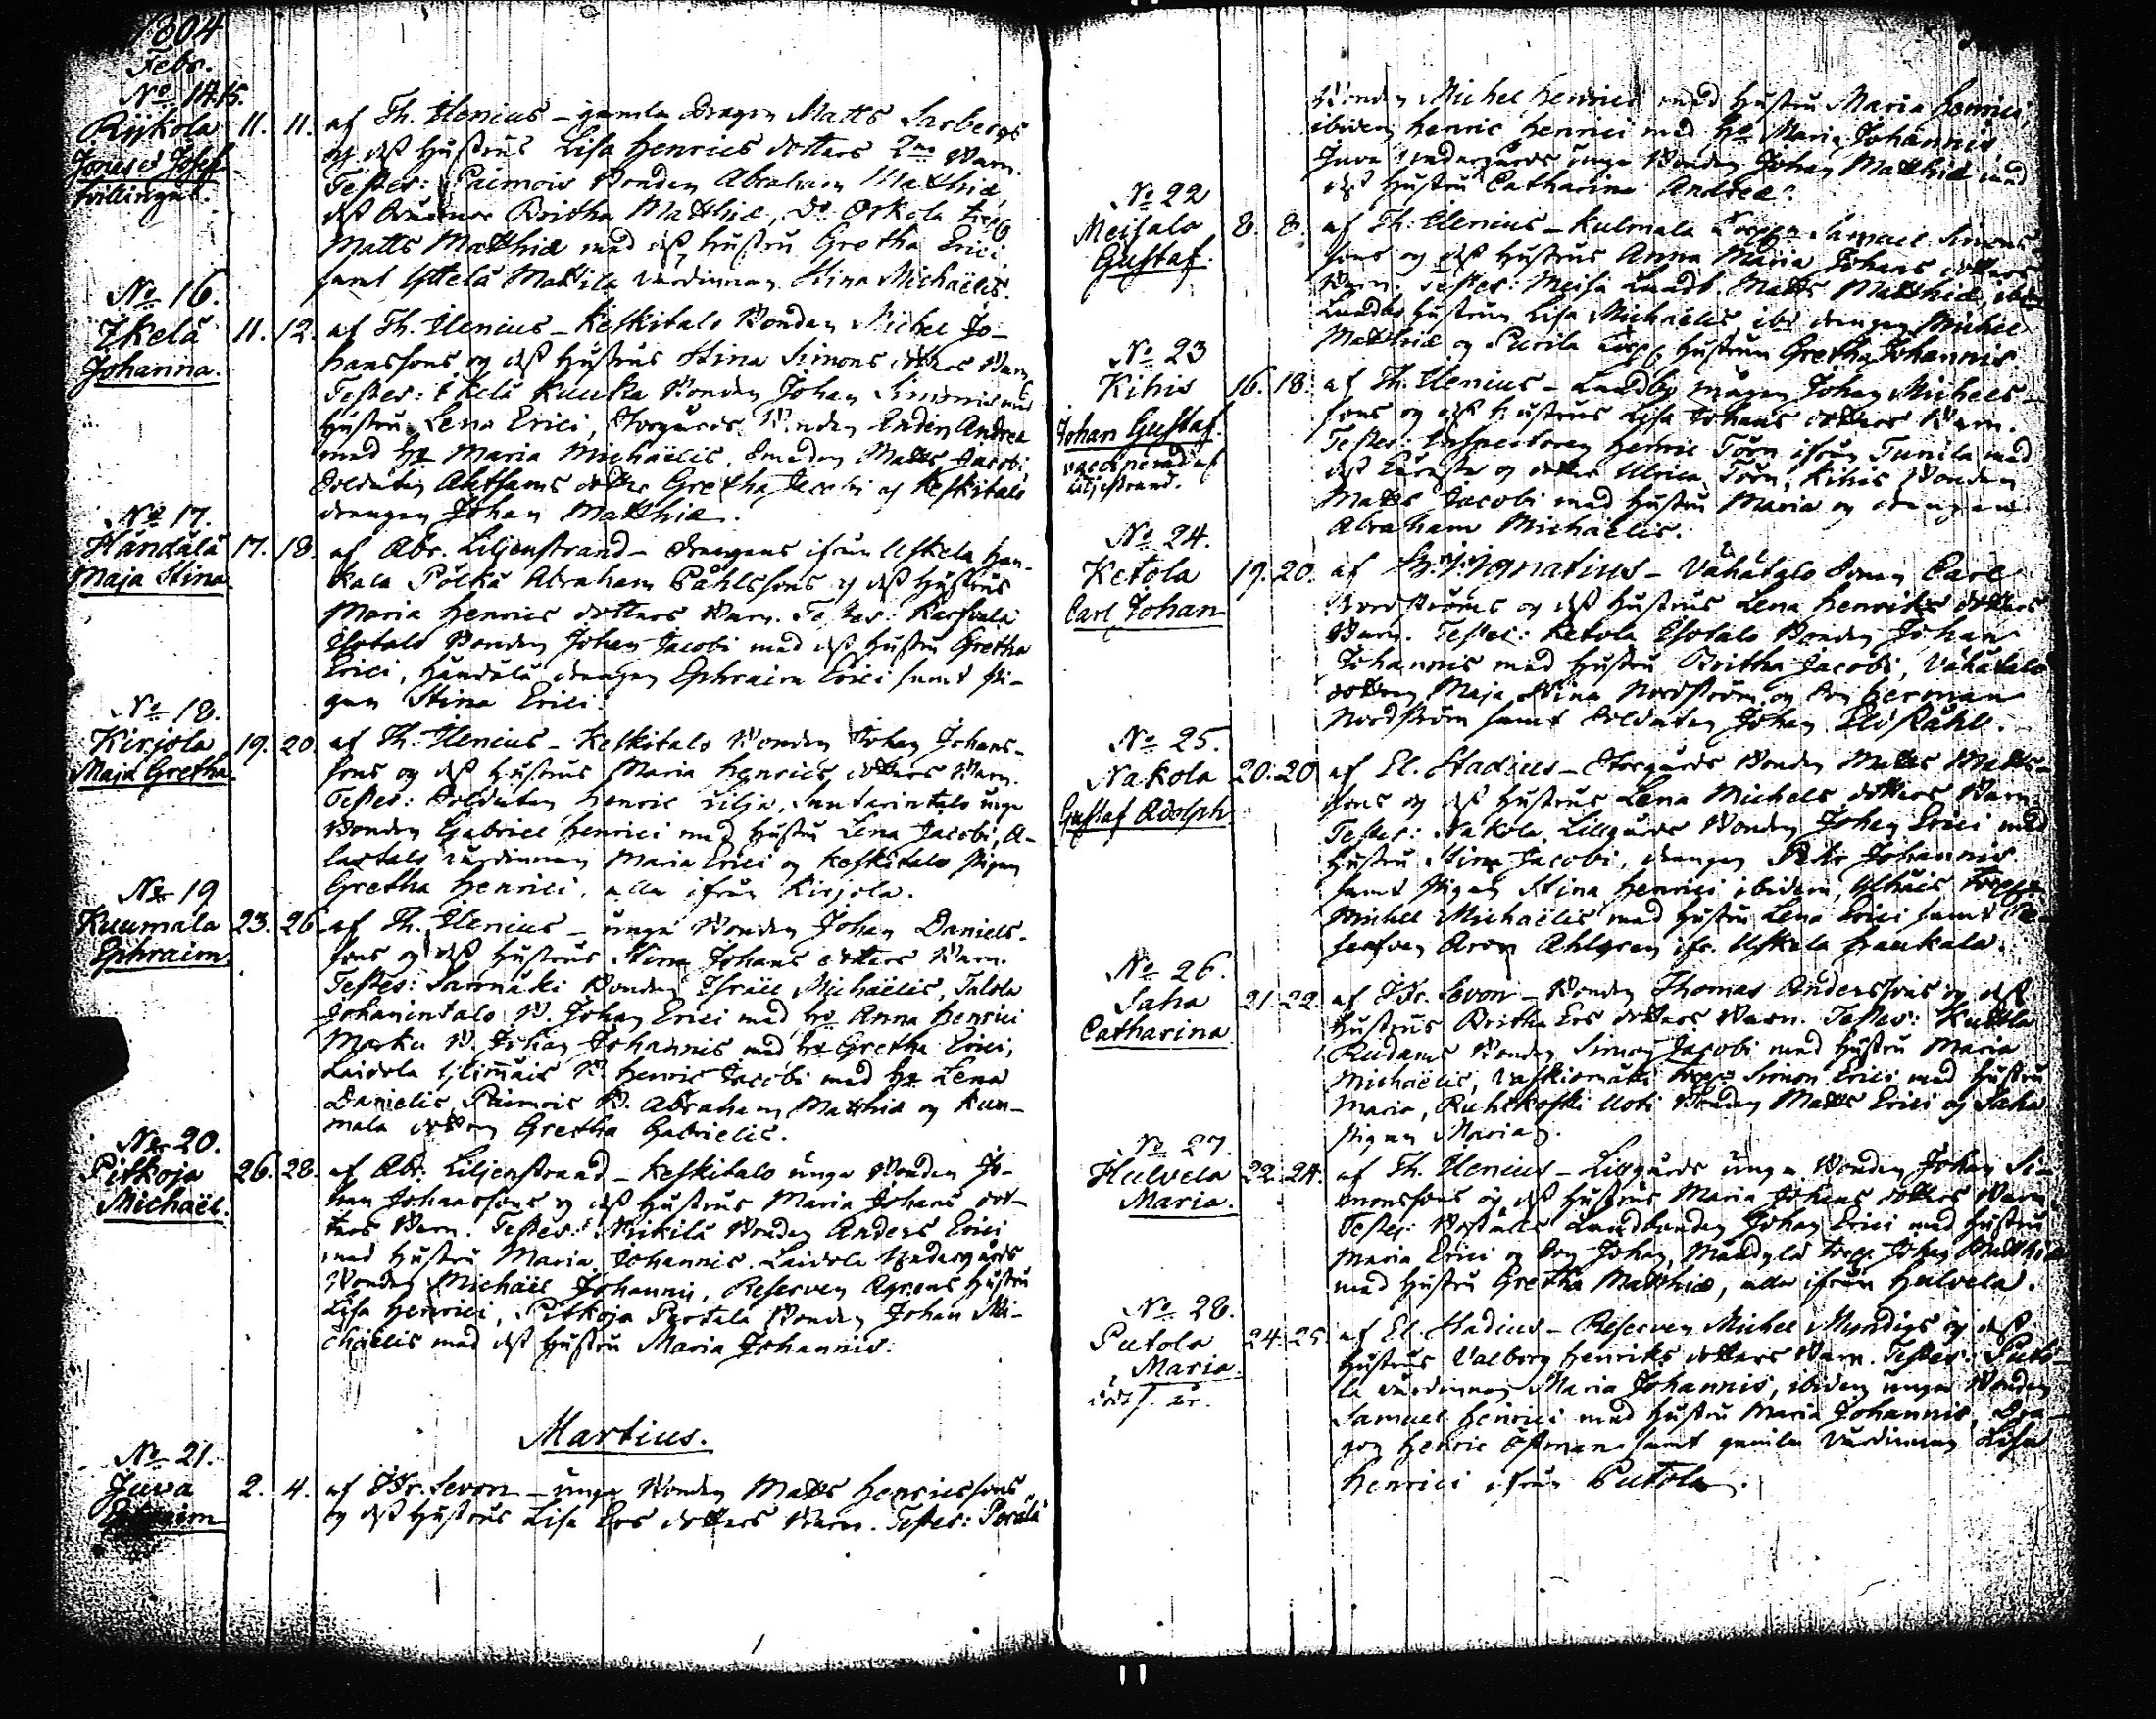 1804
Febr.
No 14.15.
Rijkola 11. 11. af Th. Ilenius - gamla Dragon Matts Sarbergs
Jonas o Josef og dess hustrus Lisa Henrics dotters 2ne Barn.
tvillingar. Testes: Paimois Bonden Abraham Matthiæ
dess Britha Matthiæ, Do Torp.
Matts Matthiæ med dess hustru Gretha Erici
samt Yttelä Mattila värdinnan Stina Michaëlis.
No 16.
Ikelä 11. 12. af Th. Ilenius - Keskitalo Bonden Michel Jo-
Johanna. hanssons og dess hustrus Stina Simons dotters Barn
Testes: Ikelä Kuuka Bonden Johan Simonis med
hustru Lena Erici, Storgårds Bonden Anders Andreæ
med h. Maria Michaëlis, Smeden Matts Jacobi
Soldaten dotter Gretha Jacobi og Keskitalo
drengen Johan Matthiæ.
No 17.
Händälä 17. 18. af Abr. Liljenstrand - drengens ifrån Uskela Han-
Maja Stina kala Pölkä Abraham Påhlssons og dess hustrus
Maria Henrics dotters Barn. Testes:
Isotalo Bonden Johan Jacobi med dess hustru Gretha
Erici, Händälä drengen Ephraim Erici samt pi-
gan Stina Erici.
No 18.
Kirjola 19. 20. af Th. Ilenius - Keskitalo Bonden Johan Johans-
Maja Gretha. sons og dess hustrus Maria Henrics dotters Barn.
Testes: Soldaten Henric Lilja, Santarintalo unge
Bonden Gabriel Henrici med hustru Lena Jacobi, A-
lastalo värdinnan Maria Erici og Keskitalo pigan
Gretha Henrici, alla ifrån Kirjola.
No 19
Kuumala 23. 26. af Th. Ilenius - unge Bonden Johan Daniels-
Ephraim sons og dess hustrus Stina Johans dotters Barn.
Testes: Sarmäki Bonden Israël Michaëlis, Talola
Johanintalo B. Johan Erici med h. Anna Henrici
Marku B. Johan Johannis med h. Gretha Erici,
Laidola B. Henric Jacobi med h. Lena
Danielis, Paimois B. Abraham Matthiæ og Kuu-
mala dottren Gretha Gabrielis.
No 20.
Pitkoja 26. 28. af Abr. Liljenstrand - Keskitalo unge Bonden Jo-
Michaël. han Johanssons og dess hustrus Maria Johans dot-
ters Barn. Testes: Mikilä Bonden Anders Erici
med hustru Maria Johannis. Laidola Nedergårds
Bonden Michaël Johannis, Reserven hustru
Lisa Henrici, Pitkoja Bonden Johan Mi-
chaëlis med dess hustru Maria Johannis.
Martius.
No 21.
Juva 2. 4. af Is. Levon - unge Bonden Matts Henricssons
og dess hustrus Lisa Ers dotters Barn. Testes: Perälä
Bonden Michel Henrici med hustru Maria Henrici,
ibidem Henric Henrici med h. Maria Johannis,
Juva Nedergårds unge Bonden Johan Matthiæ med
dess hustru Catharina Andreæ.
No 22
Meisala 8. 8. af Th. Ilenius - Kulmala Torpen Samuel Simons-
Gustaf. sons og dess hustrus Anna Maria Johans dotters
Barn. Testes: Meisa Landb. Matts Matthiæ, ibid.
Landbo hustrun Lisa Michaëlis, ibd drengen Michel
Matthiæ og Purila Torp. hustrun Gretha Johannis.
No 23
Kihis 16. 18. af Th. Ilenius - Landbo mågen Johan Michels-
Johan Gustaf. sons og dess hustrus Lisa Johans dotters Barn.
vaccinerad af Testes: Inspectoren Henric Törn ifrån Tunila med
Liljestrand. dess og dotter Ulrica Törn, Kihis Bonden
Matts Jacobi med hustru Maria og drengen
Abraham Michaëlis.
No 24.
Ketola 19. 20. af Ignatius - Vähätalo Sonen Carl
Carl Johan Nordströms og dess hustrus Lena Henriks dotters
Barn. Testes: Ketola Isotalo Bonden Johan
Johannis med hustru Britha Jacobi, Vähätalo
dottren Maja Stina Nordström og Son Herman
Nordström samt Soldaten Johan
No 25.
Nakola 20. 20. af El. Stadius - Storgårds Bonden Matts Matts-
Gustaf Adolph sons og dess hustrus Lena Michels dotters Barn.
Testes: Nakola Lillgårds Bonden Johan Erici med
hustru Stina Jacobi, drengen Petr Johannis
samt pigan Stina Henrici ibidem, Torp.
Michel Michaëlis med hustru Lena Erici samt Re-
serfven Aron Ahlgren ifr. Uskela Haukala.
No 26.
Saha 21. 22. af Is. Levon - Bonden Thomas Anderssons og dess
Catharina hustrus Britha Ers dotters Barn. Testes: Kuttla
Rudams Bonden Simon Jacobi med hustru Maria
Michaëlis, Vaskiomäki Torp. Simon Erici med hustru
Maria, Ruhikoski Uoti Bonden Matts Erici og Saha
pigan Maria.
No 27.
Hulvela 22. 24. af Th. Ilenius - Lillgårds unge Bonden Johan Si-
Maria. monssons og dess hustrus Maria Johans dotters Barn.
Testes: Landbonden Johan Erici med hustru
Maria Erici og Son Johan, Mändylä Torp. Johan Matthiæ
med hustru Gretha Matthiæ, alla ifrån Hulvela.
No 28.
Putola 24. 25. af El. Stadius - Reserven Michel Myndigs og dess
Maria. hustrus Valborg Henriks dotters Barn. Testes: Puto-
la värdinnan Maria Johannis, ibidem unge Bonden
Samuel Henrici med hustru Maria Johannis, Dra-
gon Henric Östman samt gamla värdinnan Lisa
Henrici ifrån Putola.